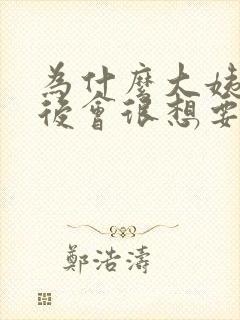 為什麼大姨
後會很想要
鄭浩濤